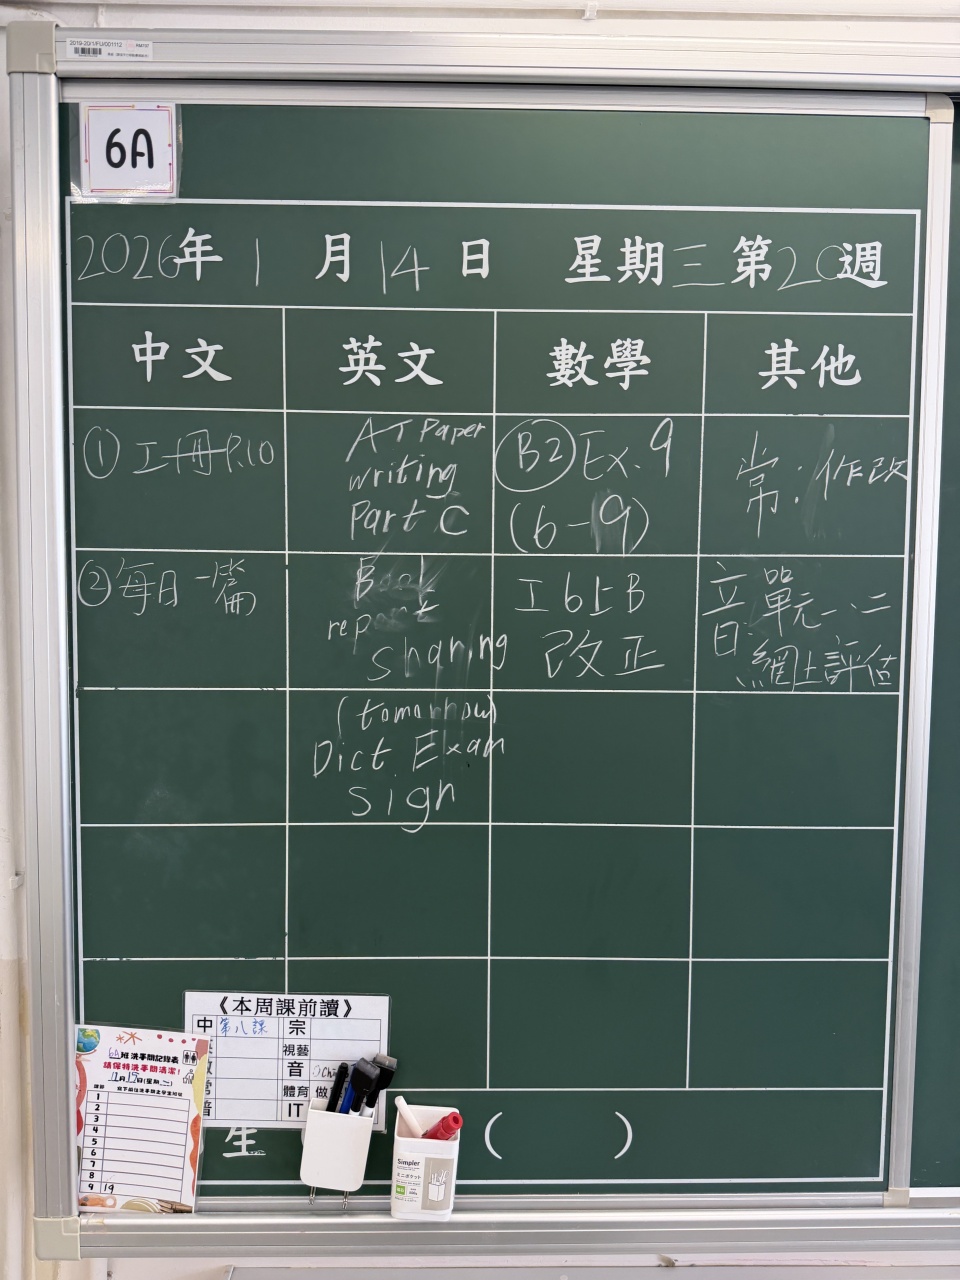 2019-20/1/FU/001112
6A
2026年1月14日 星期三第20週
中文 英文 數學 其他
① 工冊P.10
② 每日一篇
AT Paper
writing
Part C
Book
report
Sharing
(tomorrow)
Dict. Exam
Sign
B2 Ex. 9
(6-9)
工6上B
改正
常：作改
音：單元一、二
網上評估
《本周課前讀》
中 第八課 宗
視藝
音
體育 做
IT
6A班洗手間記錄表
請保持洗手間清潔！
1
2
3
4
5
6
7
8
9 19
生
( )
Simpler
ミニポケット